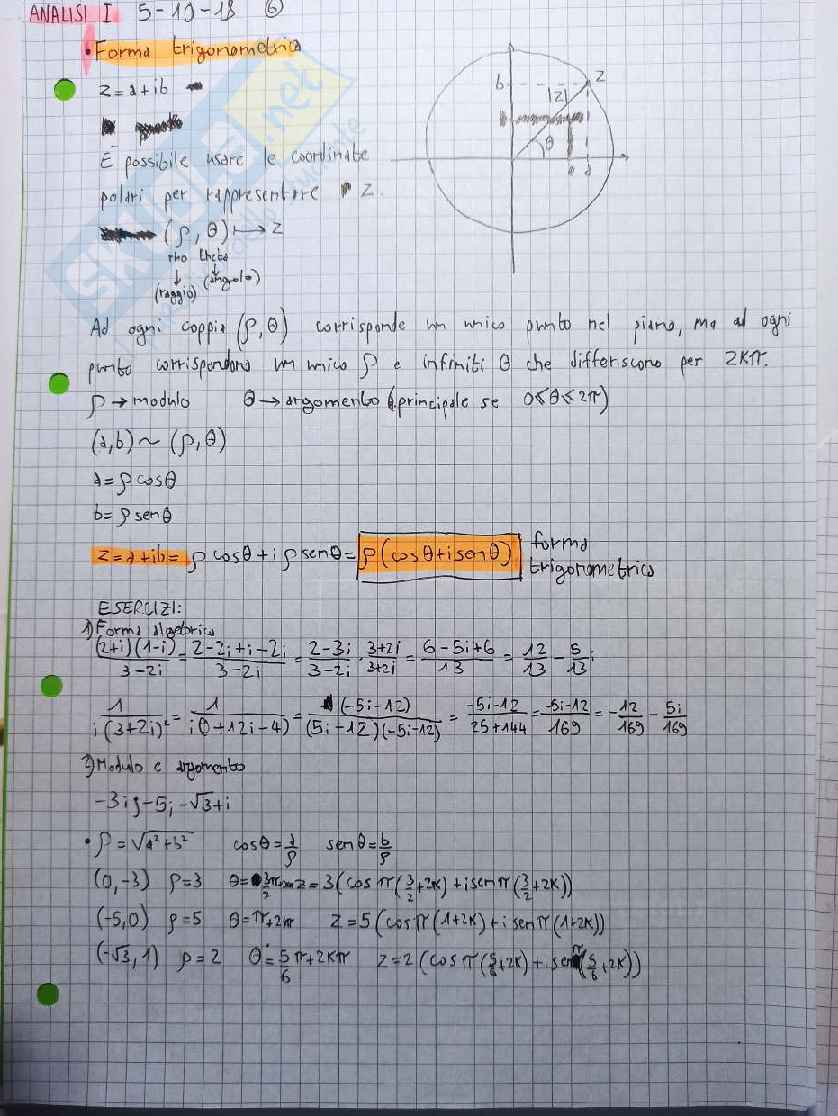 ANALISI I 5-10-18 6
• Forma trigonometrica
z=a+ib
È possibile usare le coordinate
polari per rappresentare z.
(ρ, θ) ↦ z
rho theta
↓ ↓
(raggio) (angolo)
b z
|z|
θ
a
Ad ogni coppia (ρ,θ) corrisponde un unico punto nel piano, ma ad ogni
punto corrispondono un unico ρ e infiniti θ che differiscono per 2kπ.
ρ → modulo θ → argomento (principale se 0≤θ≤2π)
(a,b) ~ (ρ,θ)
a=ρcosθ
b=ρsenθ
z=a+ib= ρcosθ+iρsenθ= ρ(cosθ+isenθ) forma
trigonometrica
ESERCIZI:
1) Forma algebrica
(2+i)(1-i)/3-2i = 2-2i+i-2i/3-2i = 2-3i/3-2i · 3+2i/3+2i = 6-5i+6/13 = 12/13 - 5/13 i
1/i(3+2i)² = 1/i(9+12i-4) = (-5i-12)/(5i-12)(-5i-12) = -5i-12/25+144 = -5i-12/169 = -12/169 - 5i/169
2) Modulo e argomento
-3i; -5; -√3+i
• ρ=√a²+b² cosθ=a/ρ senθ=b/ρ
(0,-3) ρ=3 θ= z=3(cosπ(3/2+2k)+isenπ(3/2+2k))
(-5,0) ρ=5 θ=π+2π z=5(cosπ(1+2k)+isenπ(1+2k))
(-√3,1) ρ=2 θ=5/6π+2kπ z=2(cosπ(5/6+2k)+senπ(5/6+2k))